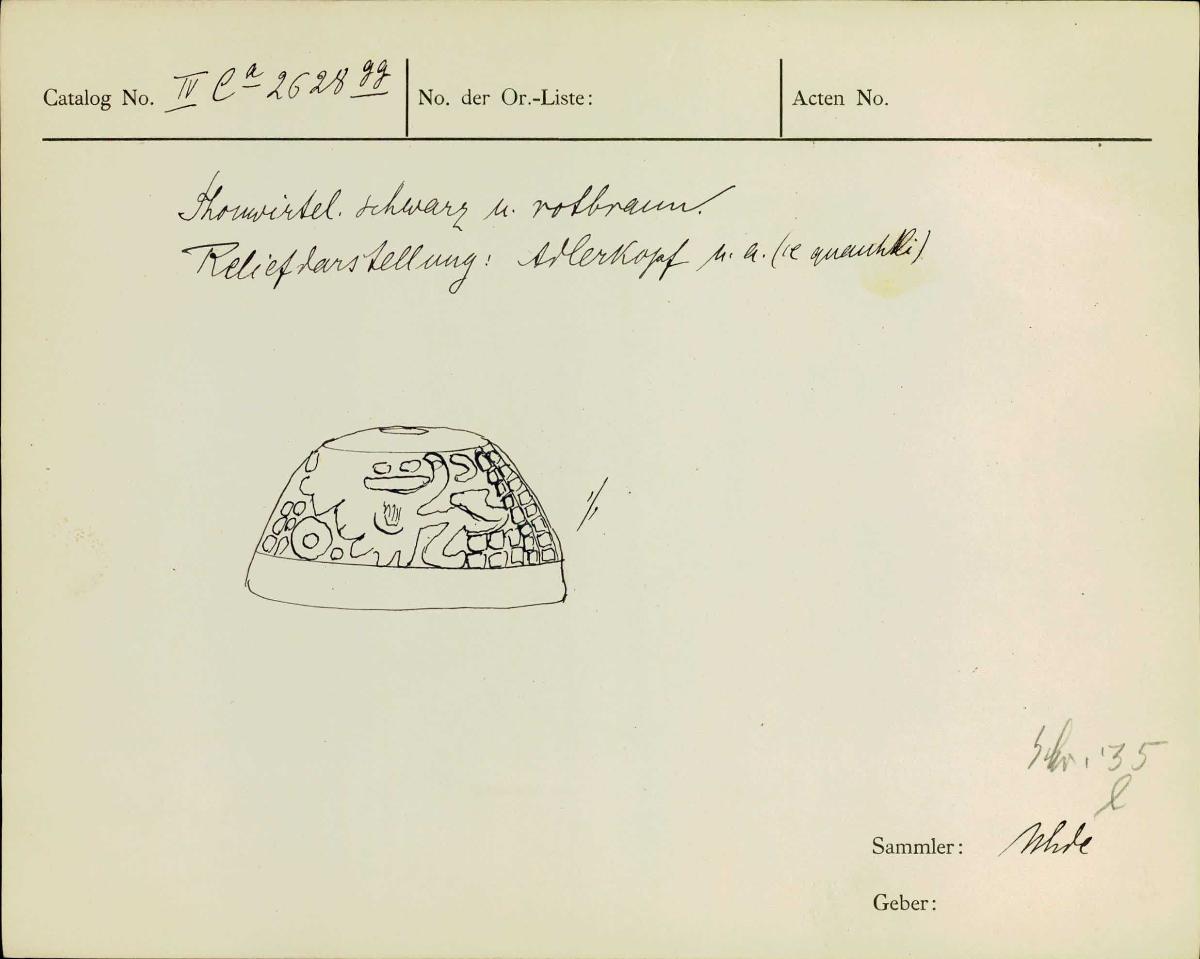 Catalog No. IV Ca 2628 gg
No. der Or.-Liste:
Acten No.
Thonwirtel. schwarz u. rotbraun.
Reliefdarstellung: Adlerkopf u. a. (
1/1
Schr. 35
Sammler: Uhde
Geber: